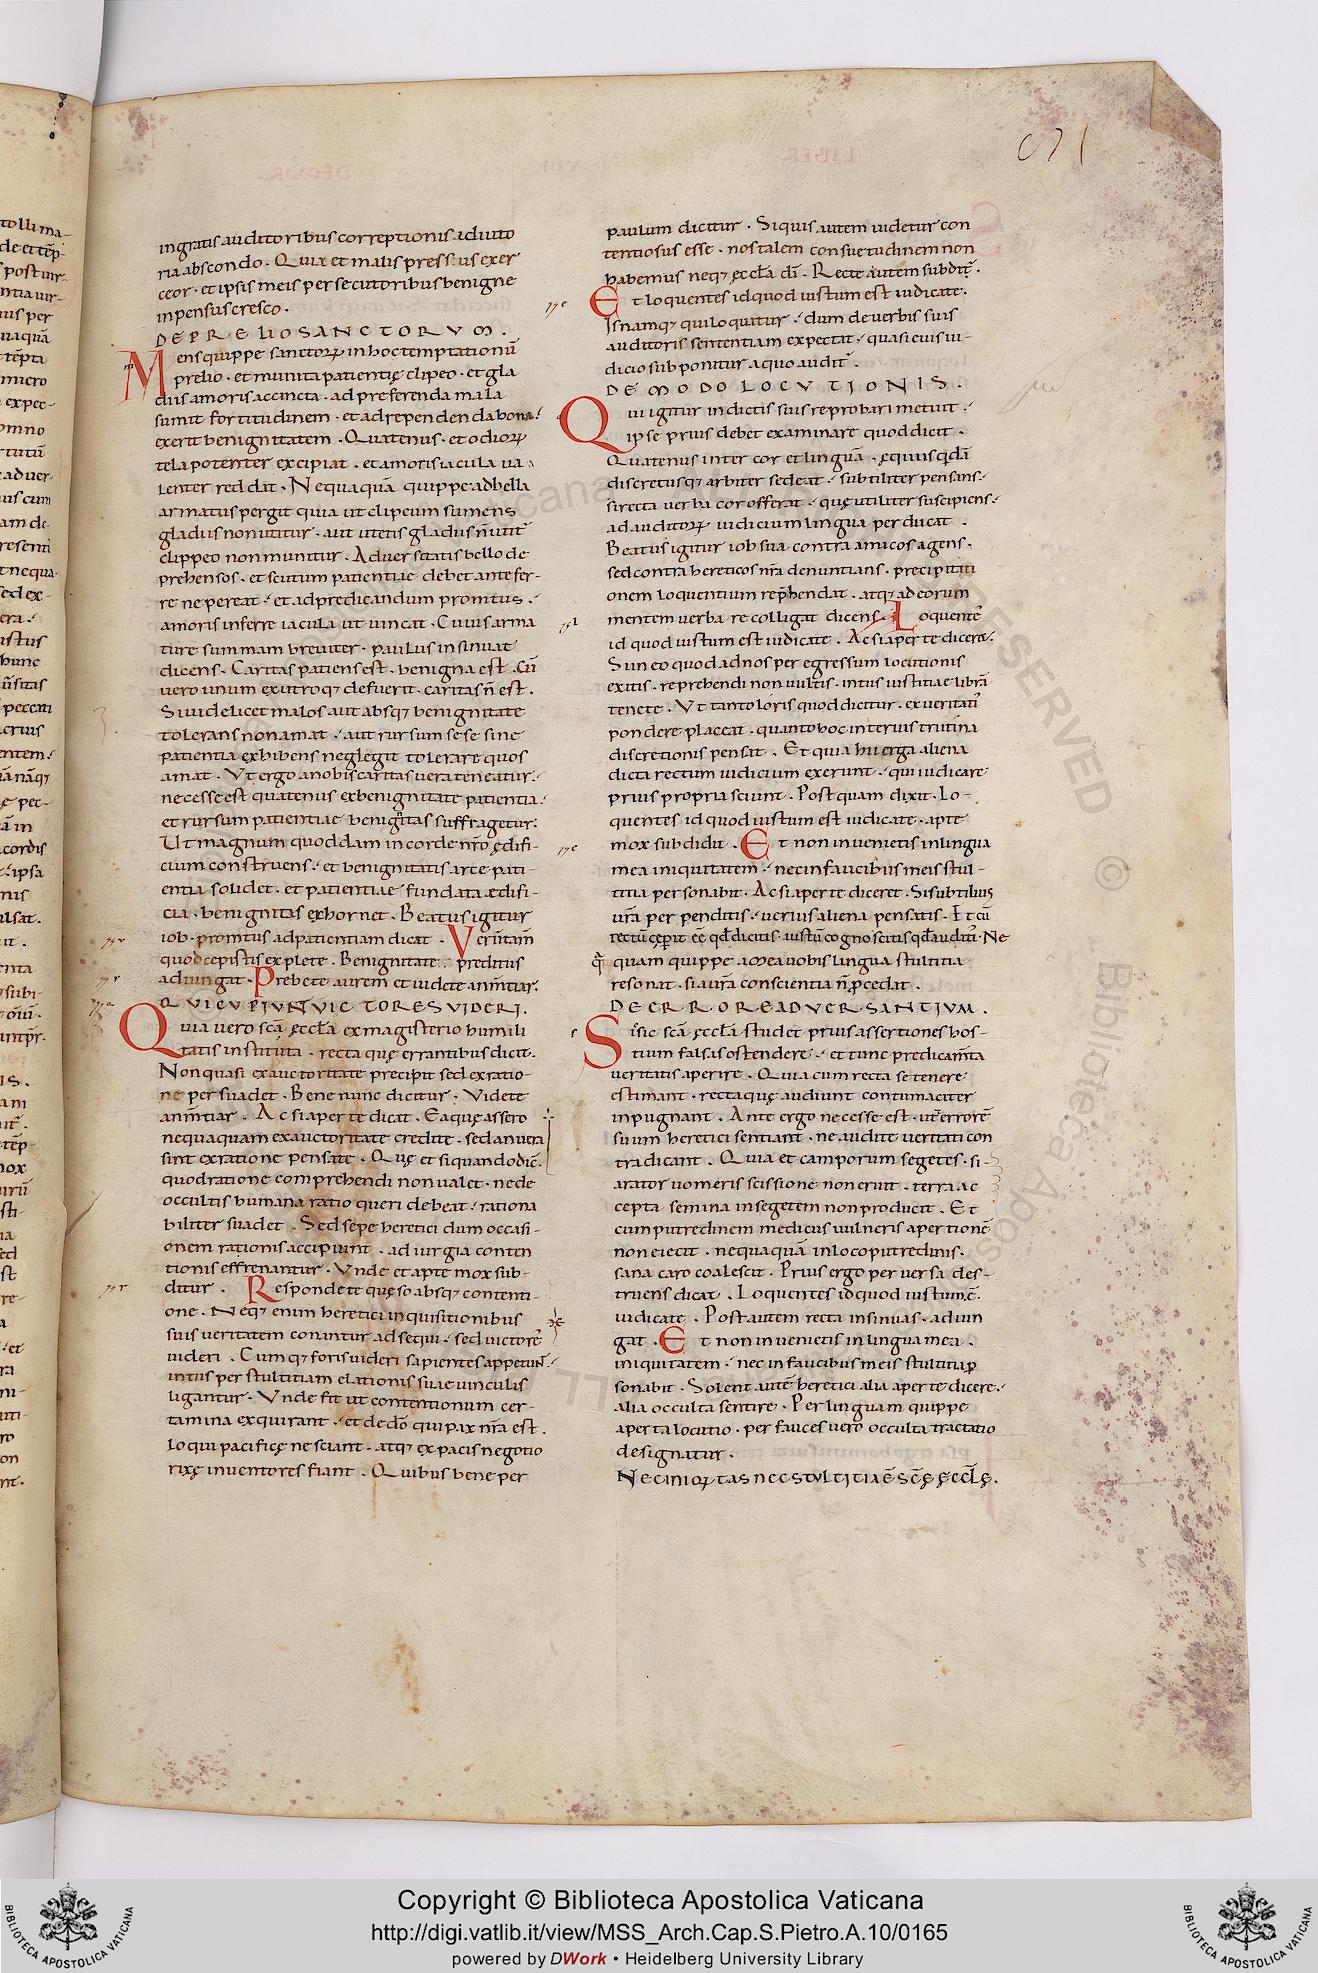 ingratis auditoribus correptionis adiuto
ria abscondo. Quia et malis pressus exer
ceor. et ipsis meis persecutoribus benigne
inpensus cresco.
DE PRELIO SANCTORUM.
Mens quippe sanctoꝝ in hoc temptationũ
prelio. et munita patientię clipeo. et gla
diis amoris accincta. ad preferenda mala
sumit fortitudinem. et ad rependenda bona
exerit benignitatem. Quatenus. et odioꝝ
tela potenter excipiat. et amoris iacula ua
lenter reddat. Nequaquã quippe ad bella
armatus pergit quia ut clipeum sumens
gladiis non utitur. aut utens gladiis ñ utit̃
clippeo non munitur. Aduersitatis bello de
prehensos. et scutum patientiae debet antefer
re ne pereat. et ad predicandum promtus.
amoris inferre iacula ut uincat. Cuius arma
ture summam breuiter. paulus insinuat
dicens. Caritas patiens est. benigna est. Cũ
uero unum ex utroq; defuerit. caritas ñ est.
Si uidelicet malos aut absq; benignitate
tolerans non amat. aut rursum sese sine
patientia exhibens neglegit tolerare quos
amat. Ut ergo a nobis caritas uera teneatur.
necesse est quatenus et benignitate patientia.
et rursum patientiae benignitas suffragetur.
Ut magnum quoddam in corde nr̃o ędifi
cium construens. et benignitatis arce pati
entia solidet. et patientiae fundata ædifi
cia. benignitas exhornet. Beatus igitur
iob. promtus ad patientiam dicat. Verũtam̃
quod cepistis explete. Benignitate. preditus
adiungat. Prebete aurem et uidete an mẽtiar.
QUI CUPIUNT VICTORES VIDERI.
Quia uero sc̃a ęccl̃a ex magisterio humili
tatis instituta. recta quę errantibus dicit.
Non quasi ex auctoritate precipit sed ex ratio
ne persuadet. Bene nunc dicitur. Videte
an mẽtiar. Ac si aperte dicat. Ea quę assero
nequaquam ex auctoritate credite. sed an uera
sint ex ratione pensate. Quę et si quando dic̃.
quod ratione comprehendi non ualet. ne de
occultis humana ratio queri debeat. rationa
biliter suadet. Sed sepe heretici dum occasi
onem rationis accipiunt. ad iurgia conten
tionis effrenantur. Unde et apte mox sub
ditur. Respondete quęso absq; contenti
one. Neq; enim heretici inquisitionibus
suis ueritatem conantur adsequi. sed uictores
uideri. Cumq; foris uideri sapientes appetunt.
intus per stultitiam elationis suae uinculis
ligantur. Unde fit ut contentionum cer
tamina exquirant. et de dõ qui pax nr̃a est.
loqui pacificę nesciant. atq; ex pacis negotio
rixę inuentores fiant. Quibus bene per
paulum dicitur. Si quis autem uidetur con
tentiosus esse. nos talem consuetudinem non
habemus neq; ęccl̃a dĩ. Recte autem subdit̃.
Et loquentes id quod iustum est iudicate.
Is namq; qui loquitur. dum de uerbis suis
auditoris sententiam expectat. quasi eius iu
dicio subponitur a quo audit̃.
DE MODO LOCUTIONIS.
Qui igitur in dictis suis reprobari metuit.
ipse prius debet examinare quod dicit.
Quatenus inter cor et linguã. ęquus qđã
discretusq; arbiter sedeat. subtiliter pensans.
si recta uerba cor offerat. quę utiliter suscipiens.
ad auditoꝝ iudicium lingua perducat.
Beatus igitur iob sua contra amicos agens.
sed contra hereticos nr̃a denuntians. precipiti
onem loquentium rep̃hendat. atq; ad eorum
mentem uerba recolligat dicens. Loquentes
id quod iustum est iudicate. Ac si aperte diceret.
Si in eo quod ad nos per egressum locutionis
exitis. reprehendi non uultis. intus iustitiae librã
tenete. Ut tanto foris quod dicitur. ex ueritatis
pondere placeat. quanto hoc interius trutina
discretionis pensat. Et quia hi erga aliena
dicta rectum iudicium exerunt. qui iudicare
prius propria sciunt. Postquam dixit. Lo
quentes id quod iustum est iudicate. apte
mox subdidit. Et non inuenietis in lingua
mea iniquitatem. nec in faucibus meis stul
titia personabit. Ac si aperte diceret. Si subtilius
ur̃a perpenditis. uerius aliena pensatis. Et cũ
rectũ cęperit eẽ qđ dicitis. iustũ cognoscitis qđ auditis. Ne
quaquam quippe a mea uobis lingua stultitia
resonat. si a ur̃a conscientia ñ p̃cedat.
DE ERRORE ADVERSANTIUM.
Sic sc̃a ęccl̃a studet prius assertiones hos
tium falsas ostendere. et tunc predicam̃ta
ueritatis aperire. Quia cum recta se tenere
estimant. recta quę audiunt contumaciter
inpugnant. Ante ergo necesse est. ut errorẽ
suum heretici sentiant. ne audite ueritati con
tradicant. Quia et camporum segetes. si
arator uomeris scissione non eruit. terra ac
cepta semina in segetem non producit. Et
cum putredinem medicus uulneris apertionẽ
non eiecit. nequaquã in loco putredinis.
sana caro coalescit. Prius ergo peruersa des
truens dicat. Loquentes id quod iustum ẽ.
iudicate. Post autem recta insinuas. adiun
gat. Et non inuenietis in lingua mea.
iniquitatem. nec in faucibus meis stultitia p̱
sonabit. Solent autẽ heretici alia aperte dicere.
alia occulta sentire. Per linguam quippe
aperta locutio. per fauces uero occulta tractatio
designatur.
NEC INIQUITAS NEC STULTITIA Ẽ SC̃Ę ĘCCL̃Ę.
Copyright © Biblioteca Apostolica Vaticana
http://digi.vatlib.it/view/MSS_Arch.Cap.S.Pietro.A.10/0165
powered by DWork • Heidelberg University Library